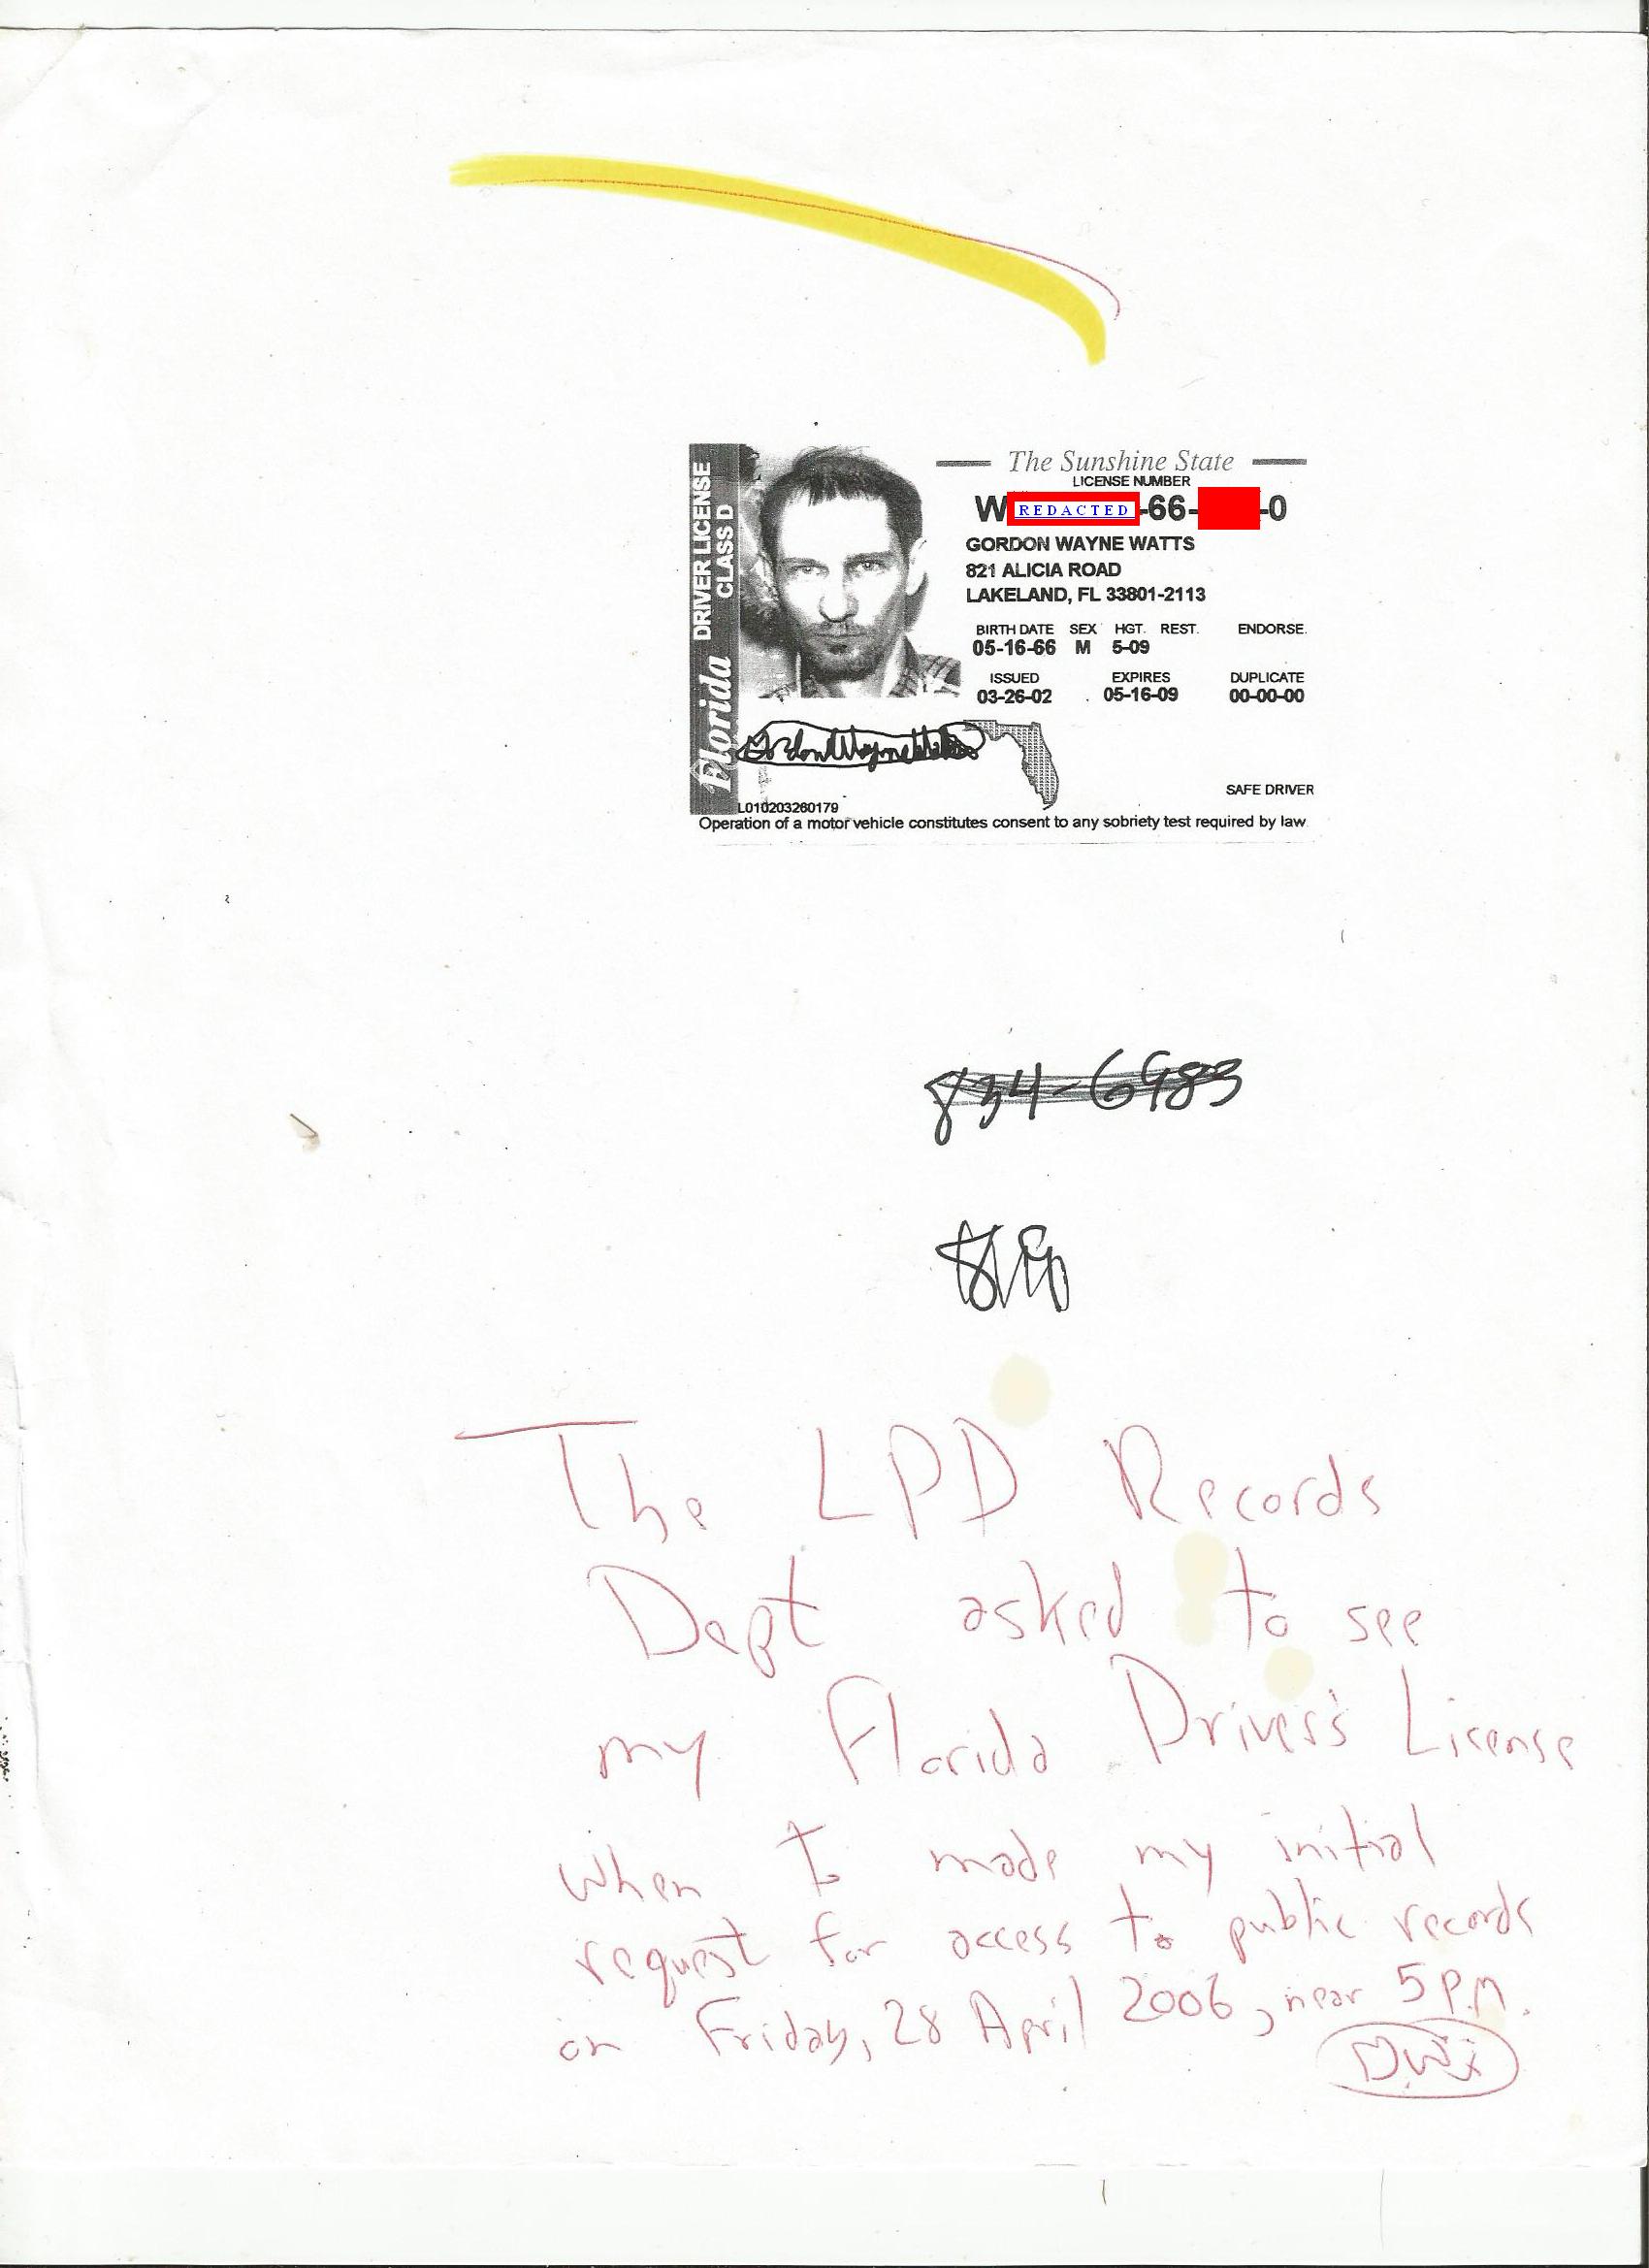 Florida DRIVER LICENSE
CLASS D
The Sunshine State
LICENSE NUMBER
W REDACTED -66- -0
GORDON WAYNE WATTS
821 ALICIA ROAD
LAKELAND, FL 33801-2113
BIRTH DATE SEX HGT. REST. ENDORSE.
05-16-66 M 5-09
ISSUED EXPIRES DUPLICATE
03-26-02 05-16-09 00-00-00
Gordon Wayne Watts
SAFE DRIVER
L010203260179
Operation of a motor vehicle constitutes consent to any sobriety test required by law.
834-6983
The LPD Records
Dept asked to see
my Florida Driver's License
when I made my initial
request for access to public records
on Friday, 28 April 2006, near 5 P.M.